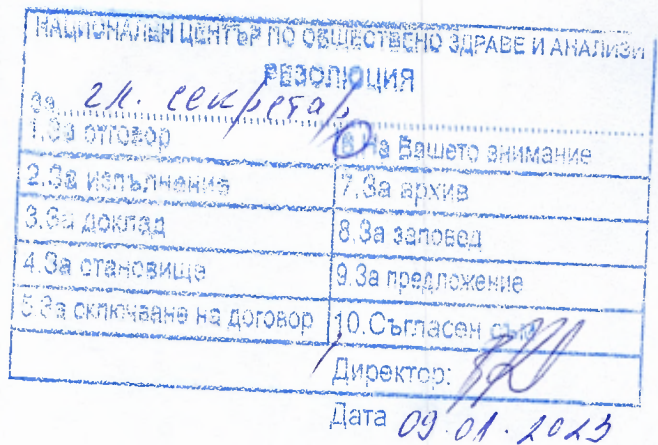 НАЦИОНАЛЕН ЦЕНТЪР ПО ОБЩЕСТВЕНО ЗДРАВЕ И АНАЛИЗИ
РЕЗОЛЮЦИЯ
За гл. секретар
1.За отговор 6.На Вашето внимание
2.За изпълнение 7.За архив
3.За доклад 8.За заповед
4.За становище 9.За предложение
5.За сключване на договор 10.Съгласен съм
Директор:
Дата 09.01.2023